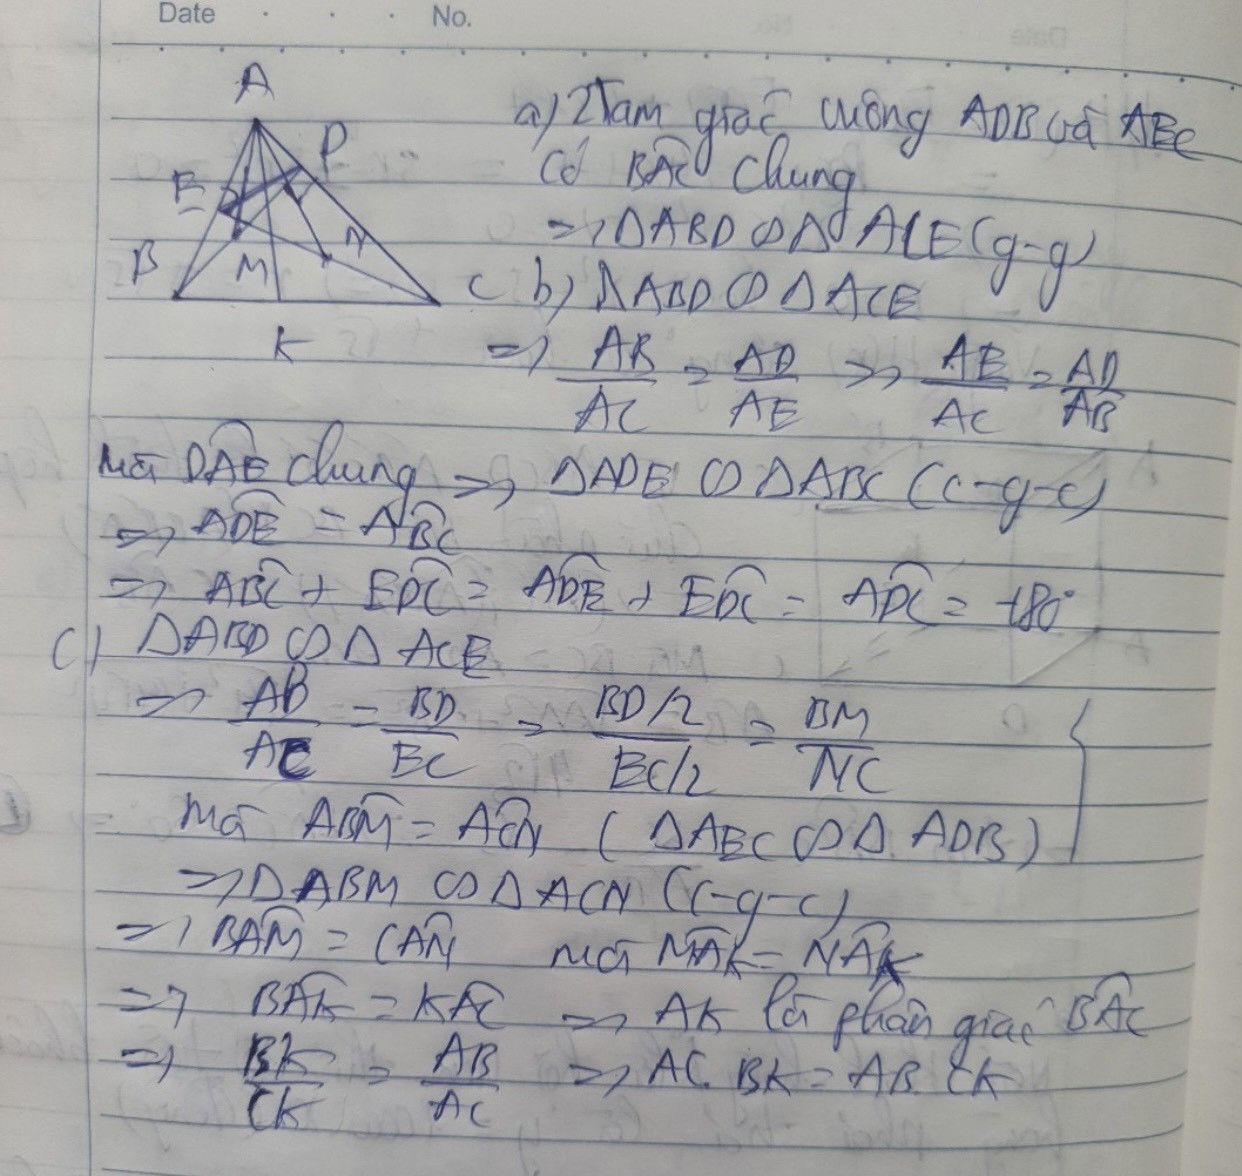 Date No.
A
P
E
N
B
M
C
K
a) 2 Tam giác vuông ADB và AEC
Có BAC chung
=> ΔABD ∽ Δ ACE (g-g)
b) ΔABD ∽ Δ ACE
=> AB/AC = AD/AE => AE/AC = AD/AB
mà DAE chung => ΔADE ∽ ΔABC (c-g-c)
=> ADE = ABC
=> ABC + EDC = ADE + EDC = ADC = 180°
c) ΔABD ∽ Δ ACE
=> AB/AC = BD/BC = BD/2 / BC/2 = BM/NC
mà ABM = ACN ( ΔAEC ∽ Δ ADB)
=> ΔABM ∽ Δ ACN (c-g-c)
=> BAM = CAN mà MAK = NAK
=> BAK = KAC => AK là phân giác BAC
=> BK/CK = AB/AC => AC. BK = AB. CK